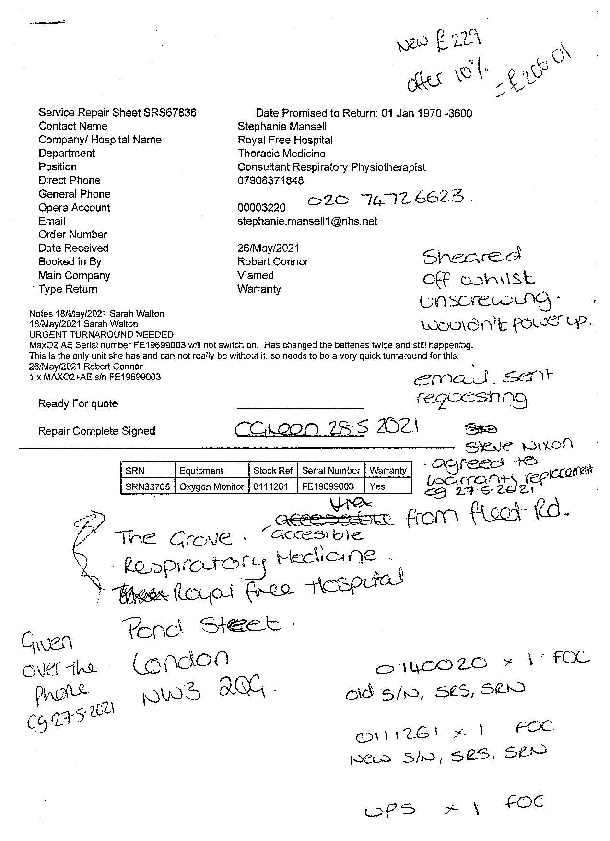 New £229
offer 10%
Service Repair Sheet SRS67636 Date Promised to Return: 01 Jan 1970 -3600
Contact Name Stephanie Mansell
Company/ Hospital Name Royal Free Hospital
Department Thoracic Medicine
Position Consultant Respiratory Physiotherapist
Direct Phone 07908371848
General Phone 020 74726623
Opera Account 00003220
Email stephanie.mansell1@nhs.net
Order Number
Date Received 26/May/2021
Booked in By Robert Connor
Main Company Viamed
Type Return Warranty
Sheared
off whilst
unscrewing.
wouldn't power up.
Notes 18/May/2021 Sarah Walton
18/May/2021 Sarah Walton
URGENT TURNAROUND NEEDED
MaxO2 AE Serial number FE19699003 will not switch on. Has changed the batteries twice and still happening.
This is the only unit she has and can not really be without it, so needs to be a very quick turnaround for this.
26/May/2021 Robert Connor
1 x MAXO2+AE s/n FE19699003
email sent
requesting
Ready For quote
Repair Complete Signed CGreen 28.5 2021
Steve Nixon
agreed to
warranty replacement
cg 27-5-2021
SRN Equipment Stock Ref Serial Number Warranty
SRN33705 Oxygen Monitor 0111261 FE19699003 Yes
via
The Grove. accesible from Fleet Rd.
Respiratory Medicine.
Royal Free Hospital
Pond Street.
London
NW3 2QG.
Given
over the
Phone
cg 27-5-2021
0140020 x 1 FOC
Old S/N, SRS, SRN
0111261 x 1 FOC
New S/N, SRS, SRN
UPS x 1 FOC